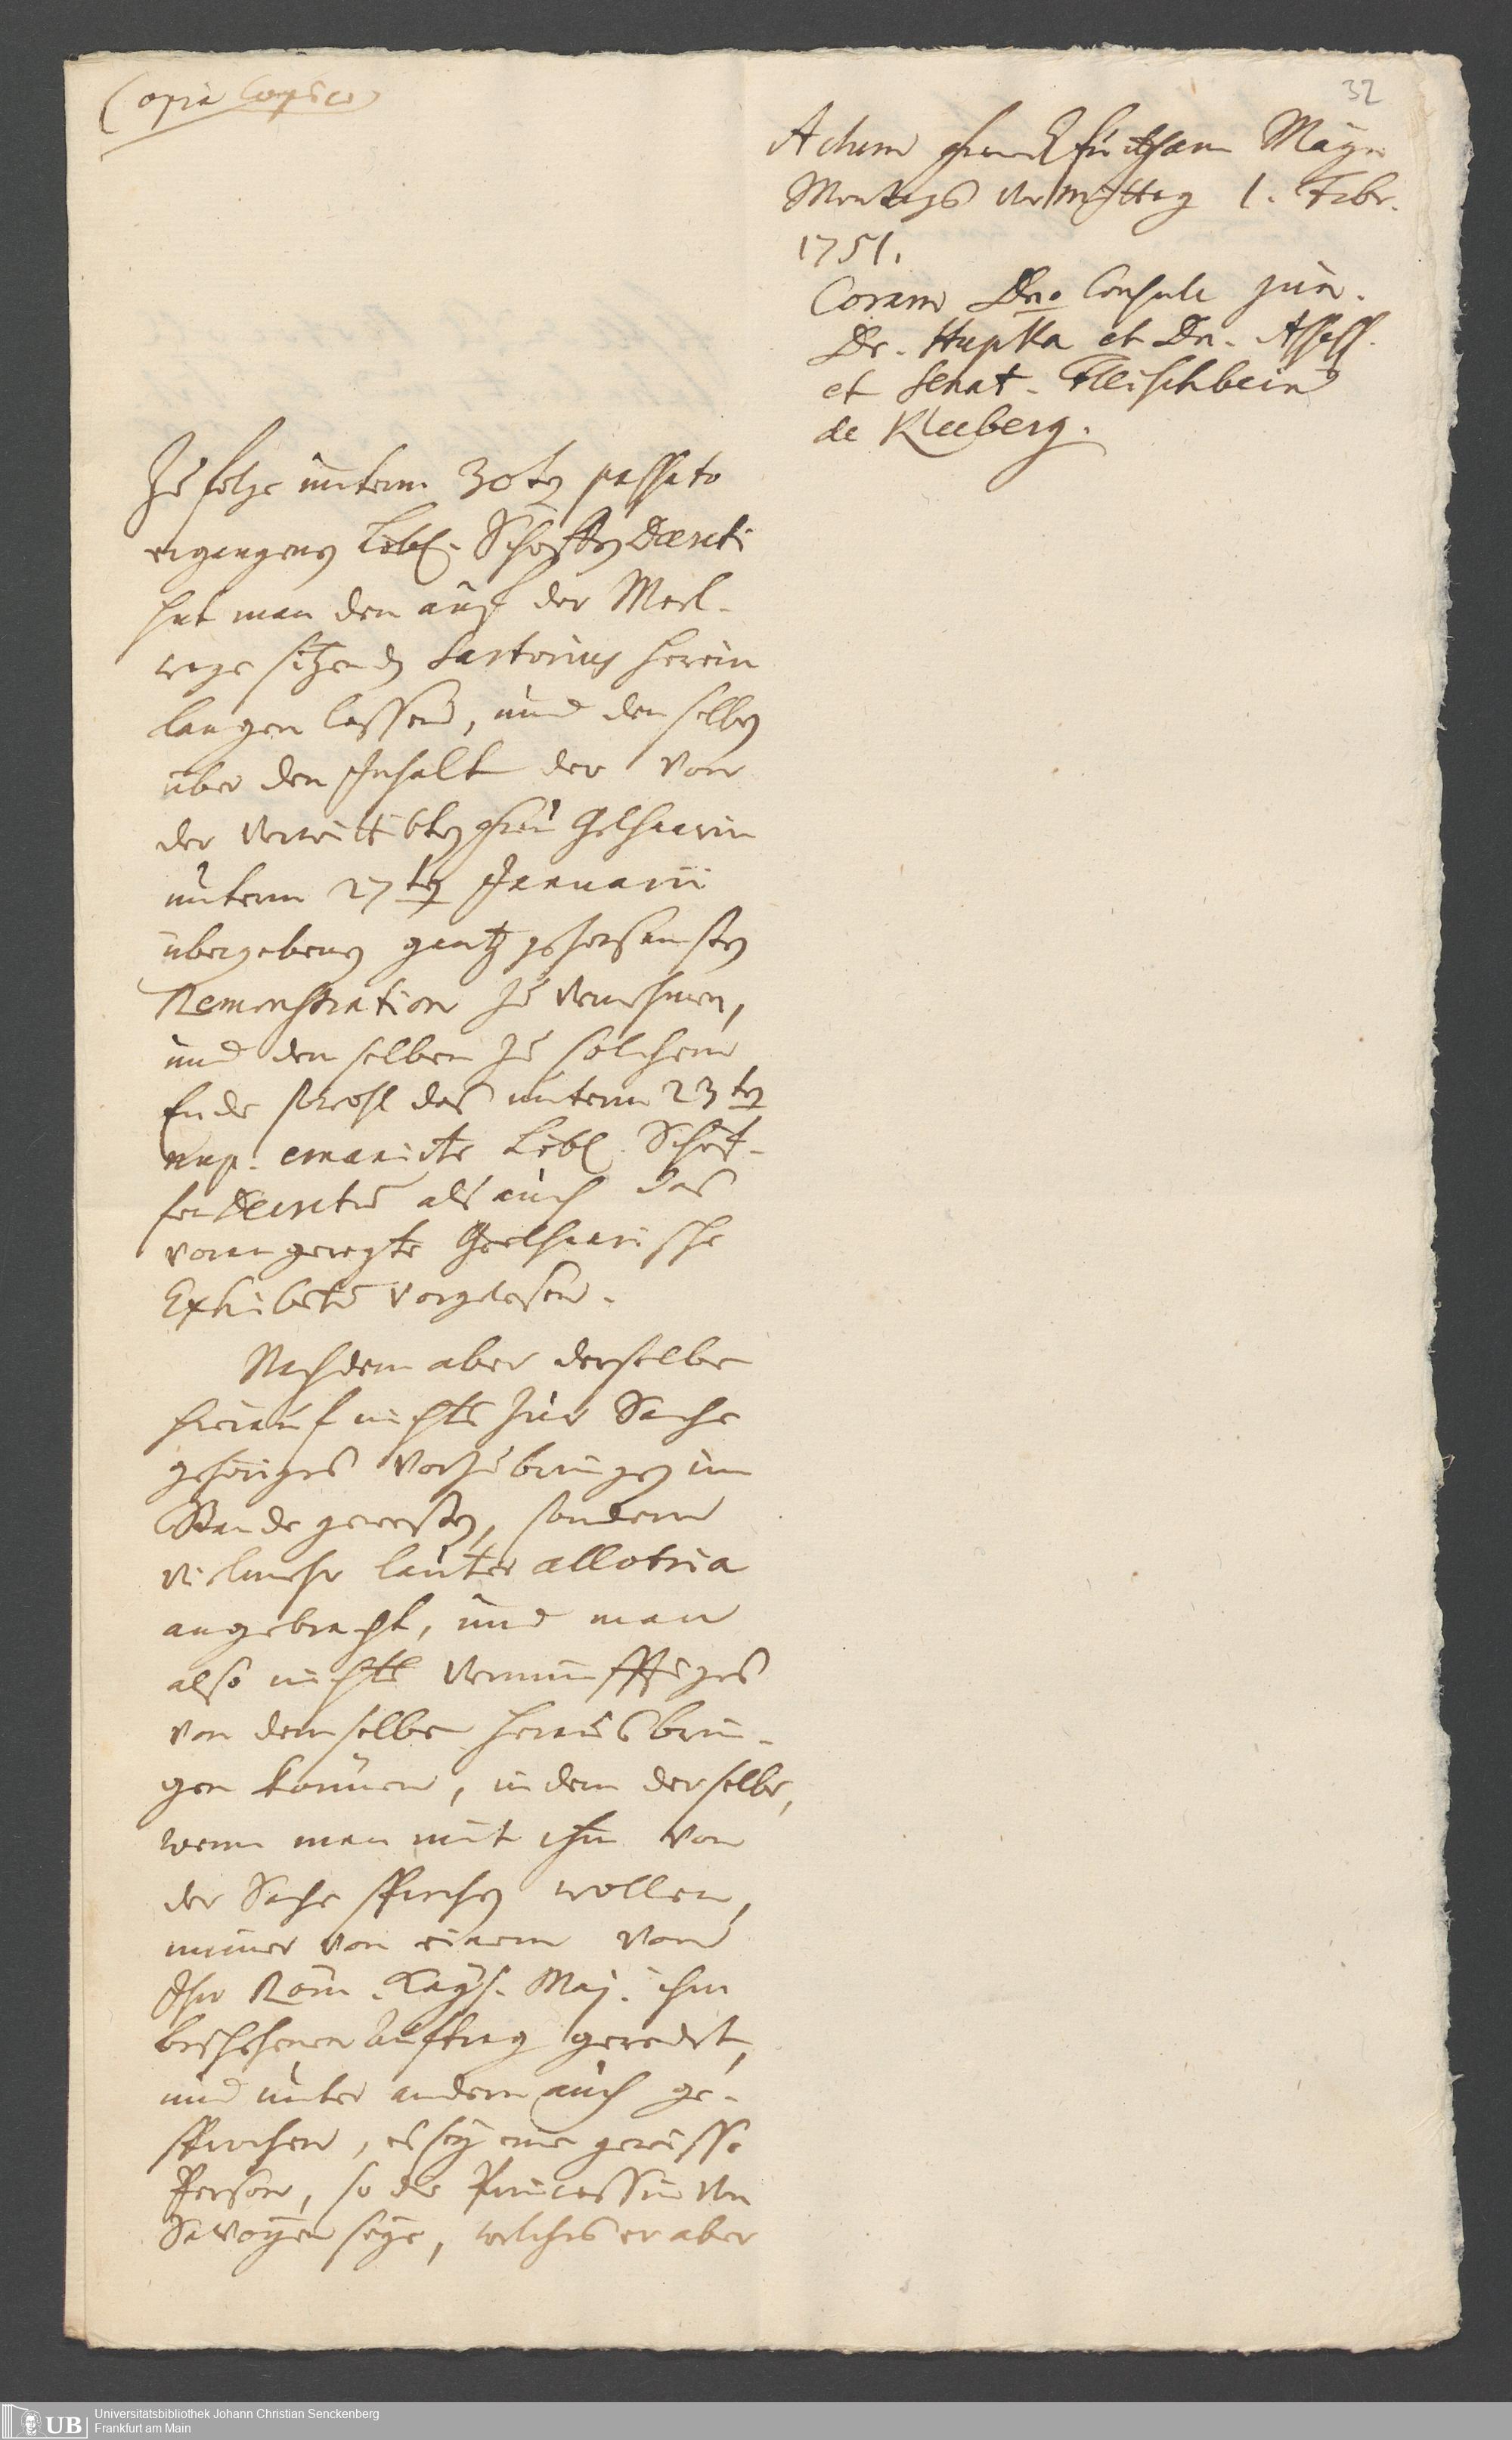 Copia Copiae
32
Actum Franckfurth am Mayn
Montags Vormittag 1. Febr.
1751.
Coram Dno. Consule jun.
Dr. Hupka et Dn. Assess.
et Senat. Fleischbein
de Kleeberg.
Zu folge unterm 30ten passato
ergangenen Löbl. Schöffen Decreti
hat man den auf der Mehl-
wage sitzenden Sartorius herein
langen lassen, und denselben
über den Inhalt der von
der verwittibten Frau Gelhaarin
unterm 27ten Januarii
übergebenen gantz gehorsamsten
Remonstration zu vernehmen,
und demselben zu solchem
Ende sowohl das unterm 23ten
nup. emanirte Löbl. Schöf-
fen Decretum als auch das
vorangeregte Geelhaarische
Exhibitum vorgelesen.
Nachdem aber derselbe
hierauf nichts zur Sache
gehöriges vorzubringen im
Stande gewesen, sondern
vielmehr lauter allotria
angebracht, und man
also nichts vernünfftiges
von demselben herausbrin-
gen können, indem derselbe,
wenn man mit ihm von
der Sache sprechen wollen,
immer von einem von
Ihr Röm. Kays. Maj. ihm
beschehenen Auftrag geredet,
und unter andern auch ge-
sprochen, es sey eine gewisse
Person, so die Princessin von
Savoyen seye, welches er aber
UB
Universitätsbibliothek Johann Christian Senckenberg
Frankfurt am Main